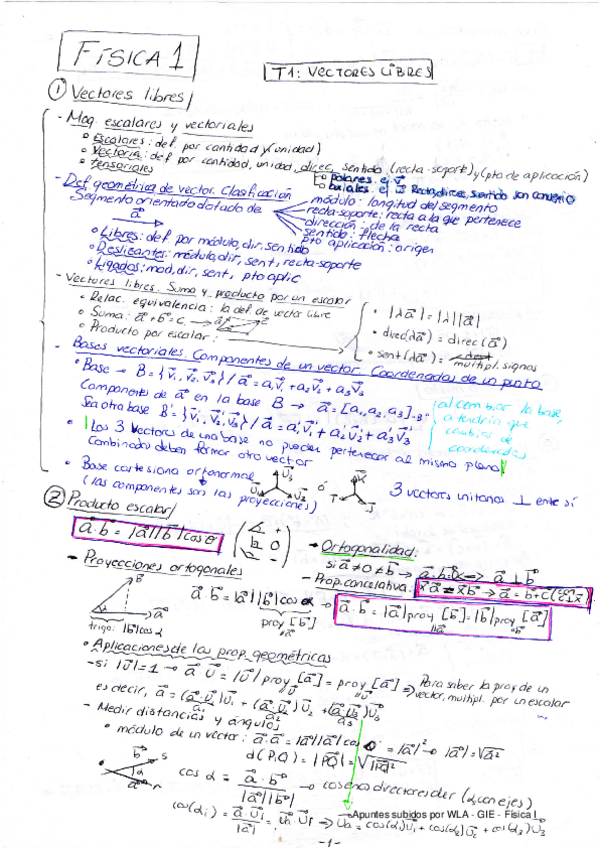 FÍSICA 1
T1: VECTORES LIBRES
① Vectores libres
- Mag. escalares y vectoriales
• Escalares: def. por cantidad y (unidad)
• Vectorial: def. por cantidad, unidad, direc, sentido, (recta-soporte) y (pto de aplicación)
• tensoriales
polares
axiales
- Def. geométrica de vector. Clasificación
Segmento orientado dotado de
módulo: longitud del segmento
recta-soporte: recta a la que pertenece
dirección: de la recta
sentido: flecha
pto aplicación: origen
• Libres: def. por módulo, dir, sentido
• Deslizantes: módulo, dir, sent, recta-soporte
• Ligados: mod, dir, sent, pto aplic
- Vectores libres. Suma y producto por un escalar
• Relac. equivalencia: la def. de vector libre
• Suma: a⃗ + b⃗ = c⃗
• Producto por escalar:
• |λa⃗| = |λ||a⃗|
• direc(λa⃗) = direc(a⃗)
• sent(λa⃗) = multipl. signos
- Bases vectoriales. Componentes de un vector. Coordenadas de un punto
• Base → B = {v⃗₁, v⃗₂, v⃗₃} / a⃗ = a₁v⃗₁ + a₂v⃗₂ + a₃v⃗₃
Componentes de a⃗ en la base B → a⃗ = [a₁, a₂, a₃]
Sea otra base B' = {v⃗₁', v⃗₂', v⃗₃'} / a⃗ = a₁'v⃗₁' + a₂'v⃗₂' + a₃'v⃗₃'
al cambiar la base,
cambiar de
coordenadas
• Los 3 vectores de una base no pueden pertenecer al mismo plano
Combinados deben formar otro vector
• Base cartesiana ortonormal
(las componentes son las proyecciones)
3 vectores unitarios ⊥ entre sí
② Producto escalar
a⃗·b⃗ = |a⃗||b⃗|cosθ
- Ortogonalidad:
si a⃗≠0≠b⃗ → a⃗·b⃗=0 <=> a⃗ ⊥ b⃗
- Prop. cancelativa:
- Proyecciones ortogonales
a⃗·b⃗ = |a⃗||b⃗|cos α
proy[b⃗]
a⃗·b⃗ = |a⃗|proy[b⃗] = |b⃗|proy[a⃗]
trigo: |b⃗|cosα
• Aplicaciones de las prop. geométricas
- si |u⃗| = 1 → a⃗·u⃗ = |u⃗| proy[a⃗] = proy[a⃗] => Para saber la proy de un
vector, multipl. por un escalar
es decir, a⃗ = (a⃗·u⃗₁)u⃗₁ + (a⃗·u⃗₂)u⃗₂ + (a⃗·u⃗₃)u⃗₃
a₁ a₂ a₃
- Medir distancias y ángulos
• módulo de un vector: a⃗·a⃗ = |a⃗||a⃗|cos 0 = |a⃗|² → |a⃗| = √a⃗²
d(P,Q) = |PQ| = √PQ²
cos α = a⃗·b⃗ / |a⃗||b⃗| → cosenos directores
cos(αᵢ) = a⃗·u⃗ᵢ / |a⃗| => u⃗a = cos(α₁)u⃗₁ + cos(α₂)u⃗₂ + cos(α₃)u⃗₃
Apuntes subidos por WLA - GIE - Física I
-1-